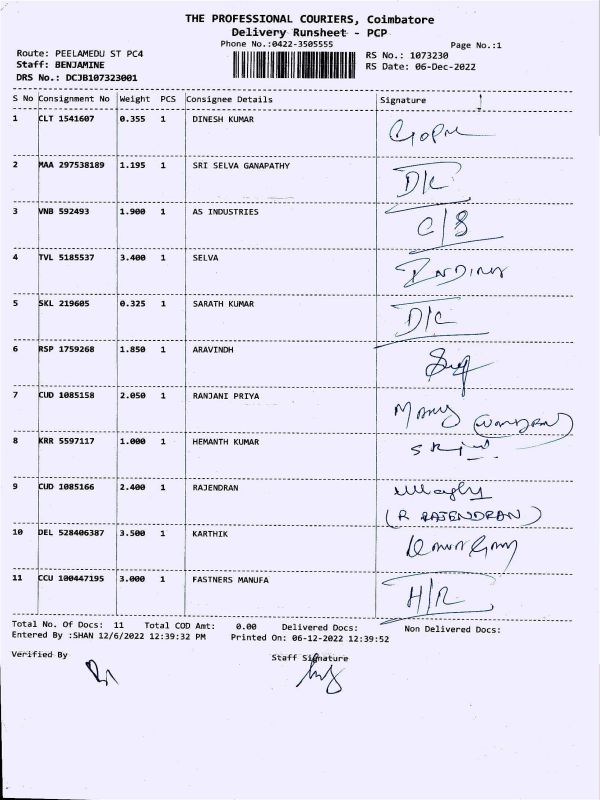 THE PROFESSIONAL COURIERS, Coimbatore
Delivery Runsheet - PCP
Phone No.:0422-3505555
Page No.:1
Route: PEELAMEDU ST PC4
RS No.: 1073230
Staff: BENJAMINE
RS Date: 06-Dec-2022
DRS No.: DCJB107323001
S No Consignment No Weight PCS Consignee Details Signature
1 CLT 1541607 0.355 1 DINESH KUMAR
2 MAA 297538189 1.195 1 SRI SELVA GANAPATHY D/C
3 VNB 592493 1.900 1 AS INDUSTRIES C/S
4 TVL 5185537 3.400 1 SELVA
5 SKL 219605 0.325 1 SARATH KUMAR D/C
6 RSP 1759268 1.850 1 ARAVINDH
7 CUD 1085158 2.050 1 RANJANI PRIYA
8 KRR 5597117 1.000 1 HEMANTH KUMAR
9 CUD 1085166 2.400 1 RAJENDRAN
(R RAJENDRAN)
10 DEL 528406387 3.500 1 KARTHIK
11 CCU 100447195 3.000 1 FASTNERS MANUFA H/R
Total No. Of Docs: 11 Total COD Amt: 0.00 Delivered Docs: Non Delivered Docs:
Entered By :SHAN 12/6/2022 12:39:32 PM Printed On: 06-12-2022 12:39:52
Verified By Staff Signature